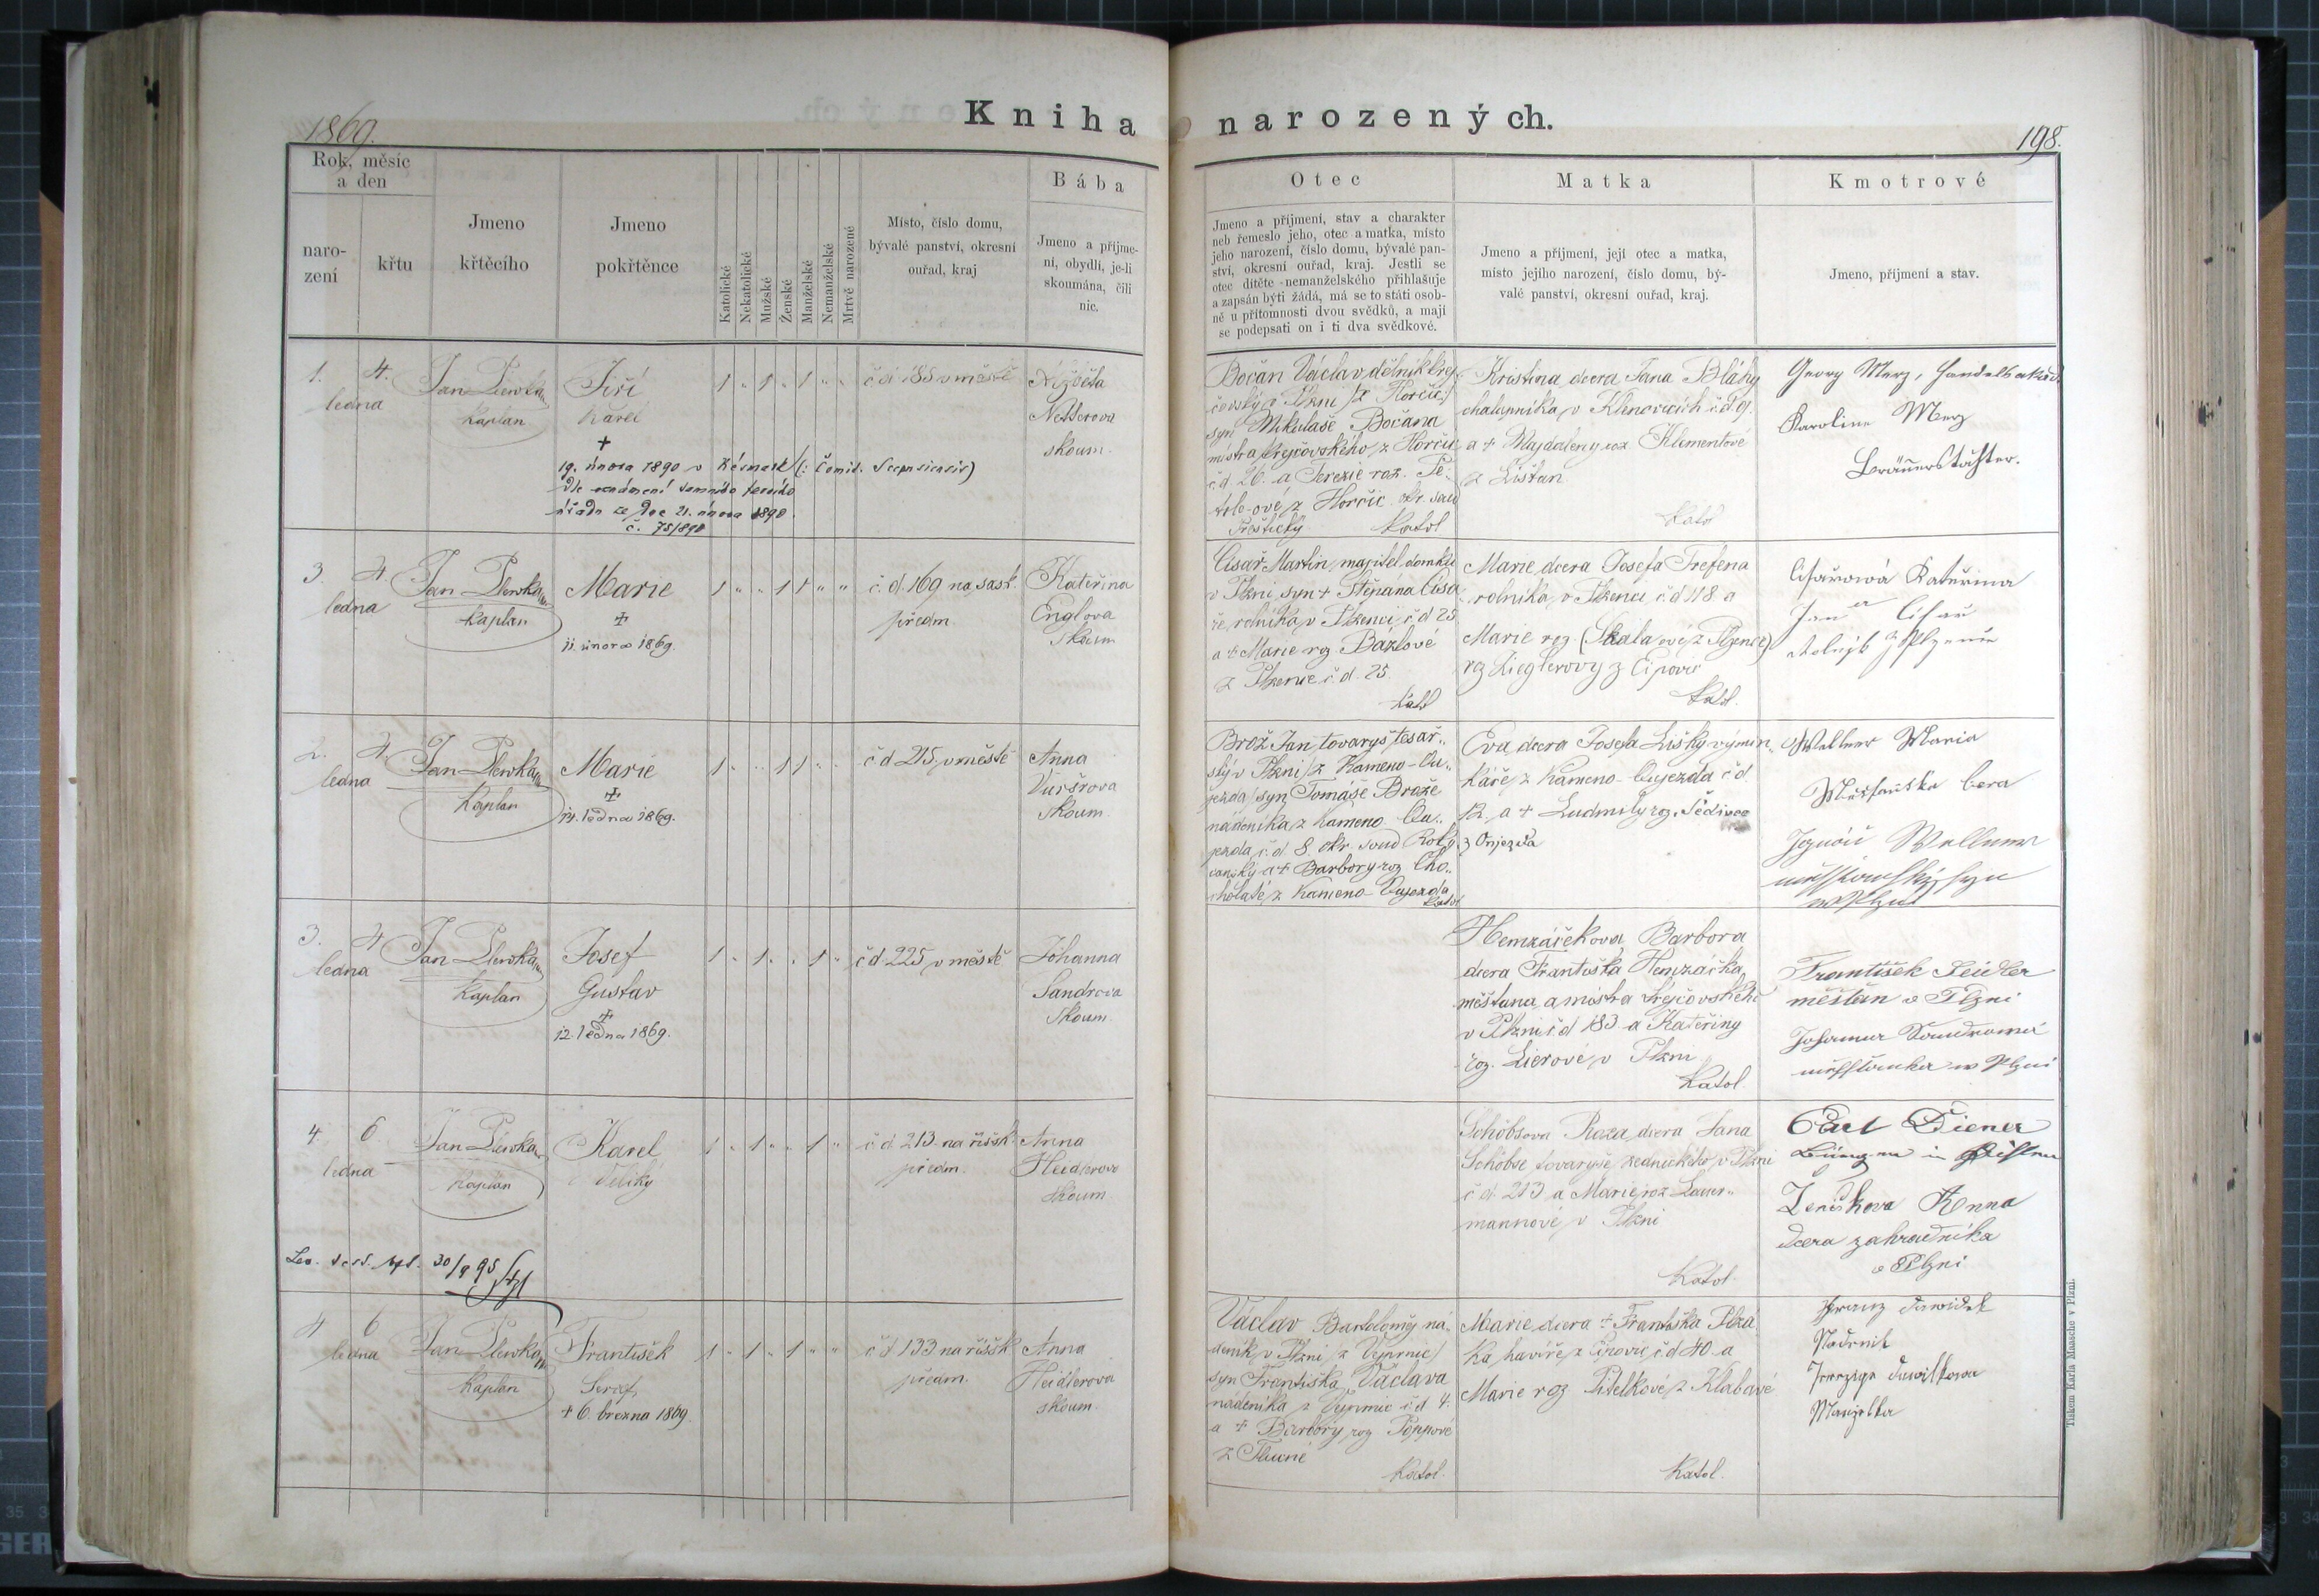 Kniha narozených.
1869.
198.
Rok, měsíc
a den
naro-
zení
křtu
Jmeno
křtěcího
Jmeno
pokřtěnce
Katolické
Nekatolické
Mužské
Ženské
Manželské
Nemanželské
Mrtvě narozené
Místo, číslo domu,
bývalé panství, okresní
ouřad, kraj
Bába
Jmeno a příjme-
ní, obydlí, je-li
skoumána, čili
nic.
Otec
Jmeno a příjmení, stav a charakter
neb řemeslo jeho, otec a matka, místo
jeho narození, číslo domu, bývalé pan-
ství, okresní ouřad, kraj. Jestli se
otec dítěte nemanželského přihlašuje
a zapsán býti žádá, má se to státi osob-
ně u přítomnosti dvou svědků, a mají
se podepsati on i ti dva svědkové.
Matka
Jmeno a příjmení, její otec a matka,
místo jejího narození, číslo domu, bý-
valé panství, okresní ouřad, kraj.
Kmotrové
Jmeno, příjmení a stav.
1. 4.
ledna
Jan
Kaplan
Jiří
Karel
+
19. února 1890 v
úřadu ze dne 21. února 1890.
č. 75/890
1 " 1 " 1 " "
č d 185 v městě
Nesserova
skoum.
Bočan Václav dělník krej
čovský v Plzni (z Horčic)
syn Mikuláše Bočana
mistra krejčovského z Horčic
č d 26. a Terezie roz.
z Horčic okr. soud
Přeštický. Katol
Kristina dcera Jana Bláhy
chalupníka v Klenovicích č. d. 9.
a + Magdaleny roz. Klementové
z Lišťan
Katol
Georg Merz,
Karoline Merz
3. 4.
ledna
Jan
Kaplan
Marie
+
11. února 1869.
1 " " 1 1 " "
č. d. 169 na sask.
předm.
Kateřina
Englova
Skoum
Císař Martin, majitel domku
v Plzni, syn + Štěpána Císa
ře, rolníka v Plzenci č d 25
a + Marie rz. Bázlové
z Plzence č. d. 25.
Katol
Marie dcera Josefa Trefena
rolníka v Plzenci č d 118 a
Marie roz. (Skalaové z Plzence)
rz Zieglerovy z
Katol.
Císařowá Kateřina
Jan Císař
2. 4.
ledna
Jan
Kaplan
Marie
+
14. ledna 1869.
1 " " 1 1 " "
č d 215 v městě
Anna
Skoum
Brož Jan tovaryš tesař„
ský v Plzni (z Kameno-Ou„
jezda) syn Tomáše Brože
nádeníka z Kameno Ou„
jezda č. d 8. okr. soud Roky
canský a + Barbory roz Cho„
cholaté z Kameno-Oujezda
Katol
Eva dcera Josefa Lišky výmin„
káře z Kameno-Oujezda č d
12. a + Ludmily roz. Šedivec
z Oujezda
Wellner Maria
Měšťanska Cera
Wellner
3. 4
ledna
Jan
Kaplan
Josef
Gustav
+
12. ledna 1869.
1 " 1 " 1 "
č d 225 v městě
Johanna
Sandrova
Skoum.
Hemzáčekova Barbora
dcera Františka Hemzáčka
měšťana a mistra krejčovského
v Plzni č d 183 a Kateřiny
roz. Lierové v Plzni
Katol
František Zeidler
měšťan v Plzni
Johanna Sandrowá
měssťanka w Plzni
4 6
ledna
Jan
Kaplan
Karel
Veliký
1 " 1 " " 1 "
č d 213 na říšsk.
předm.
Anna
Heidlerova
Skoum
30/9 95
Schöbsova Róza, dcera Jana
Schöbse tovaryše zednického v Plzni
č d. 213 a Marie roz Lauer„
mannové v Plzni
Katol.
Carl Diener
Anna
dcera zahradníka
v Plzni
4 6
ledna
Jan
Kaplan
František
Seraf.
+ 6. března 1869.
1 " 1 " 1 " "
č d 133 na říšsk
předm.
Anna
Heidlerova
skoum.
Václav Bartoloměj ná„
deník v Plzni (z Vejprnic)
syn Františka Václava
nádeníka z Vejprnic č d 4.
a + Barbory roz Poppové
Katol.
Marie dcera + Františka
ka, havíře z č d 40 a
Marie roz Pitelkové z Klabavé
Katol.
Franz
Manželka
Tiskem Karla Maasche v Plzni.